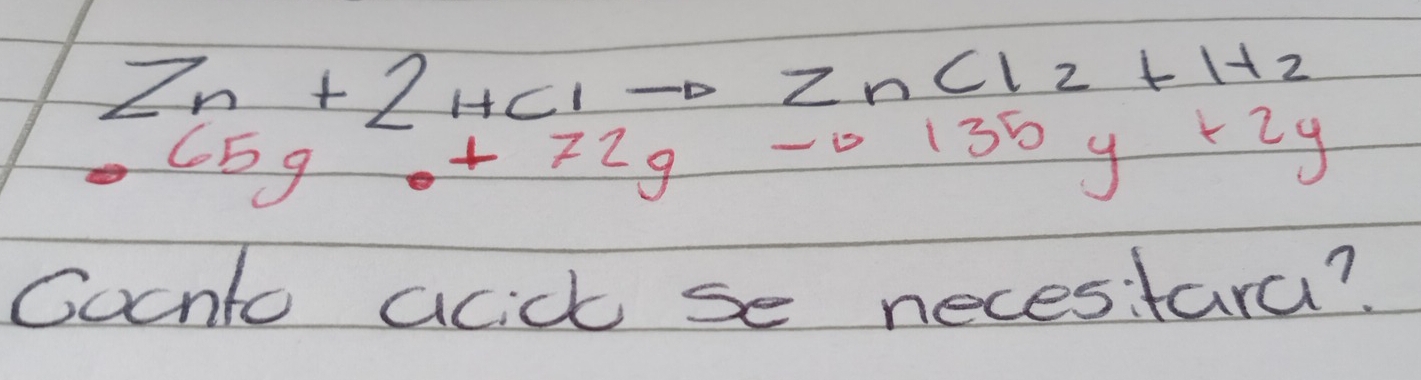 Zn + 2HCl → ZnCl2 + H2
65g + 72g → 135g + 2g
Cuanto acido se necesitara?